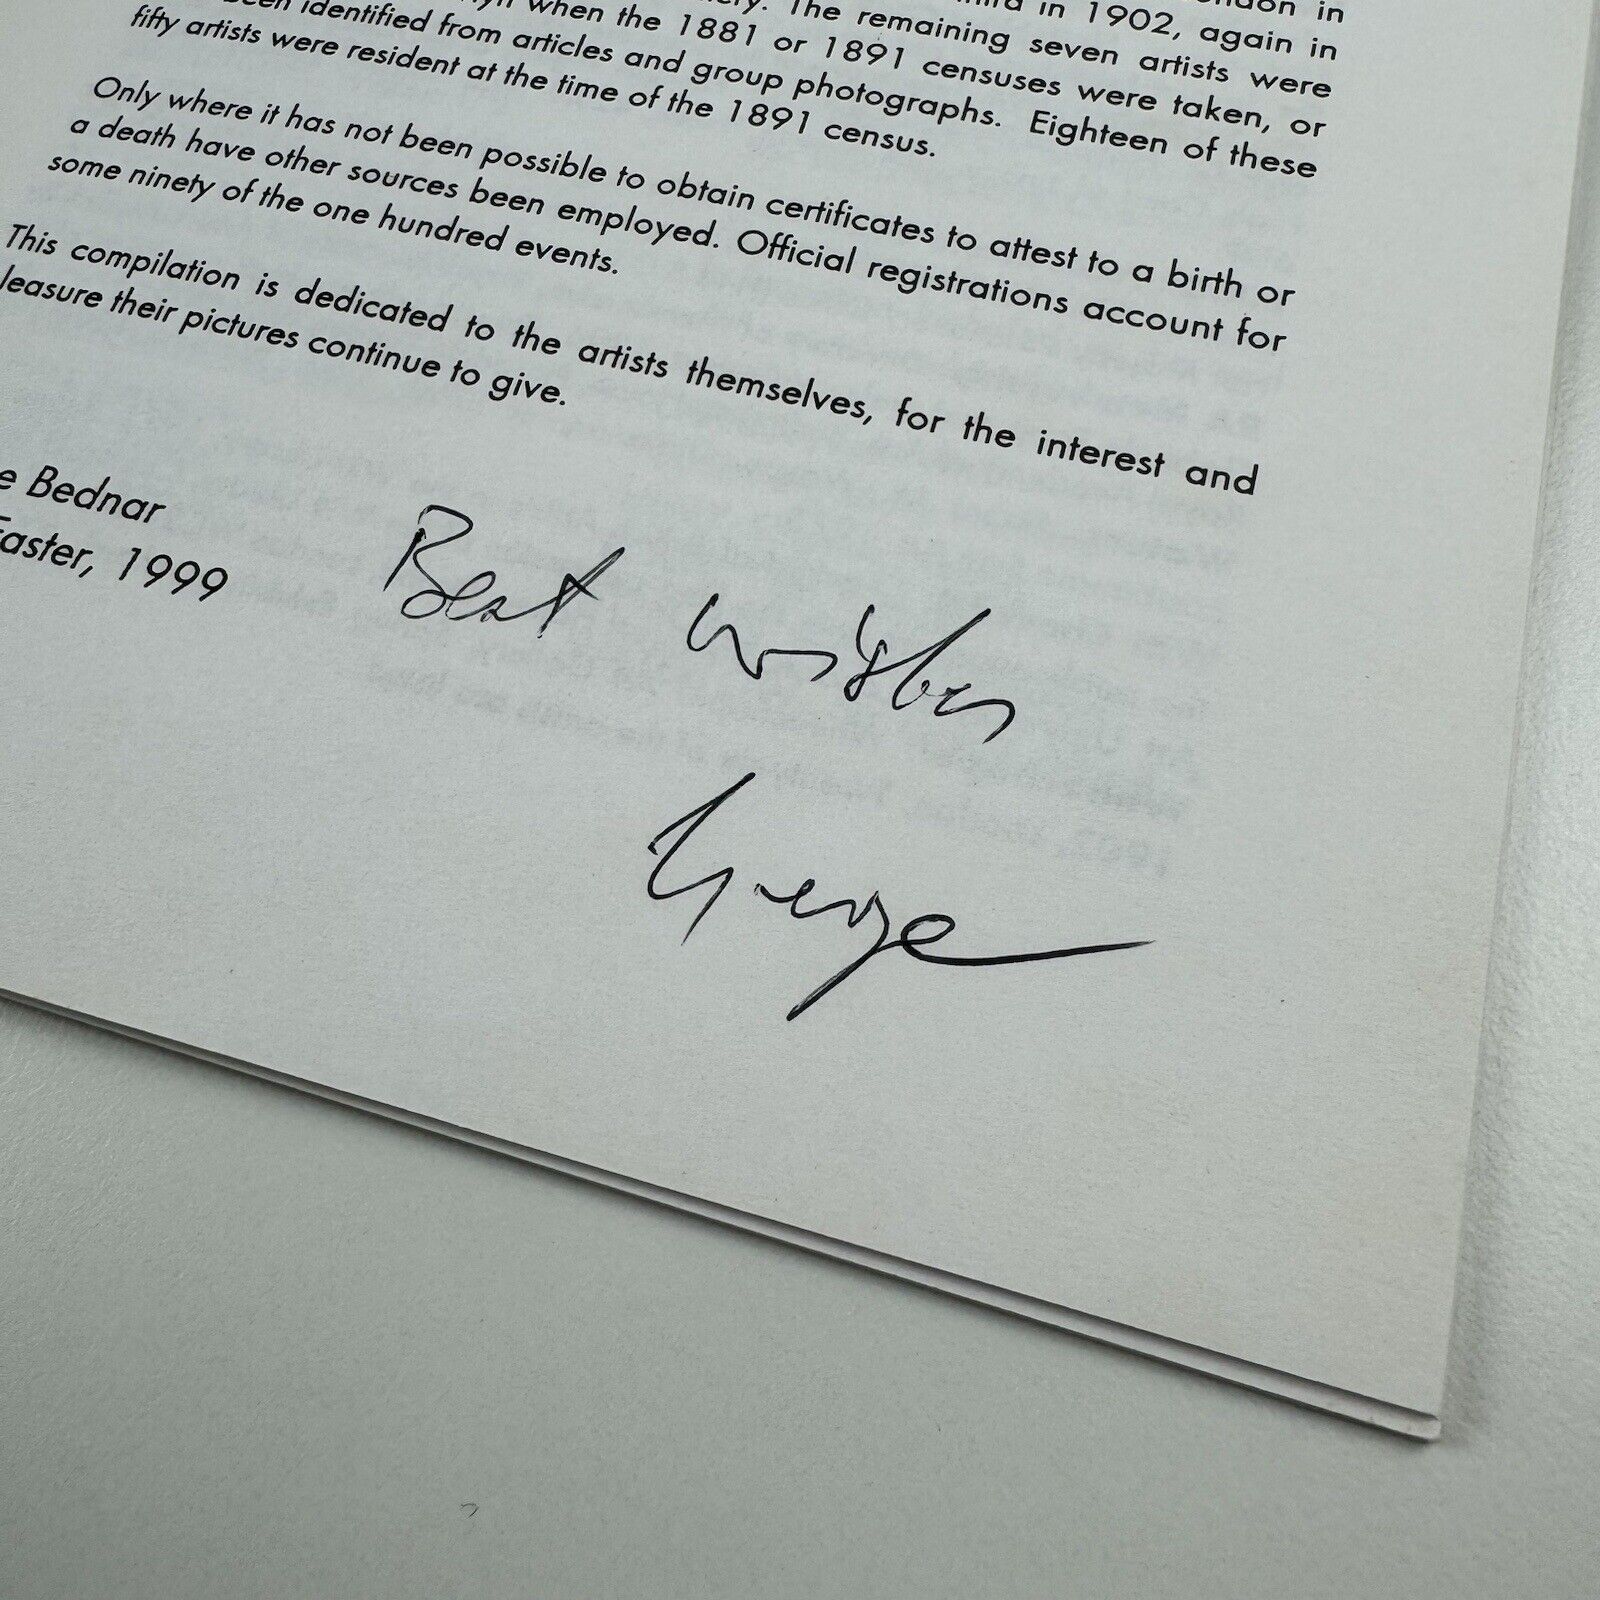 ondon in
in 1902, again in
The remaining seven artists were
when the 1881 or 1891 censuses were taken, or
been identified from articles and group photographs. Eighteen of these
fifty artists were resident at the time of the 1891 census.
Only where it has not been possible to obtain certificates to attest to a birth or
a death have other sources been employed. Official registrations account for
some ninety of the one hundred events.
This compilation is dedicated to the artists themselves, for the interest and
leasure their pictures continue to give.
e Bednar
Easter, 1999
Best wishes
George